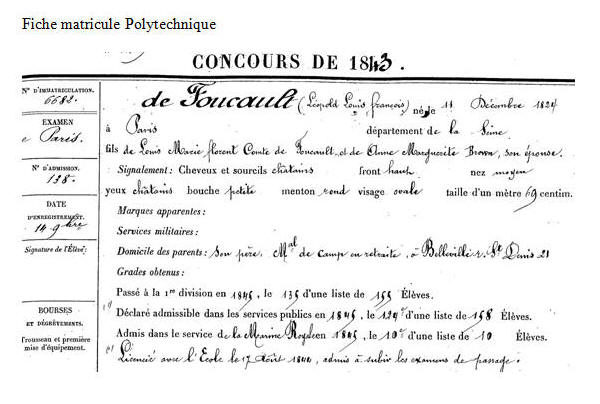 Fiche matricule Polytechnique
CONCOURS DE 1843.
N° D'IMMATRICULATION.
6682.
EXAMEN
Paris.
N° D'ADMISSION.
138.
DATE
D'ENREGISTREMENT.
14 9bre
Signature de l'Élève:
BOURSES
ET DÉGRÈVEMENTS.
Trousseau et première
mise d'équipement.
de Foucault (Léopold Louis françois) né le 11 Décembre 1824
à Paris département de la Seine
fils de Louis Marie florent Comte de Foucault et de Anne Marguerite Brown, son épouse.
Signalement: Cheveux et sourcils châtains front haut nez moyen
yeux châtains bouche petite menton rond visage ovale taille d'un mètre 69 centim.
Marques apparentes:
Services militaires:
Domicile des parents: Son père. Mal de camp en retraite, à Belleville r. St Denis 21
Grades obtenus:
Passé à la 1re division en 1845, le 135 d'une liste de 155 Élèves.
Déclaré admissible dans les services publics en 1845, le 124e d'une liste de 158 Élèves.
Admis dans le service de la Marine Royale en 1845, le 10e d'une liste de 10 Élèves.
Licencié avec l'Ecole le 17 Août 1844, admis à subir les examens de passage.